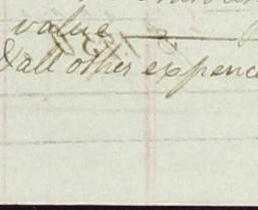 value
& all other expenc